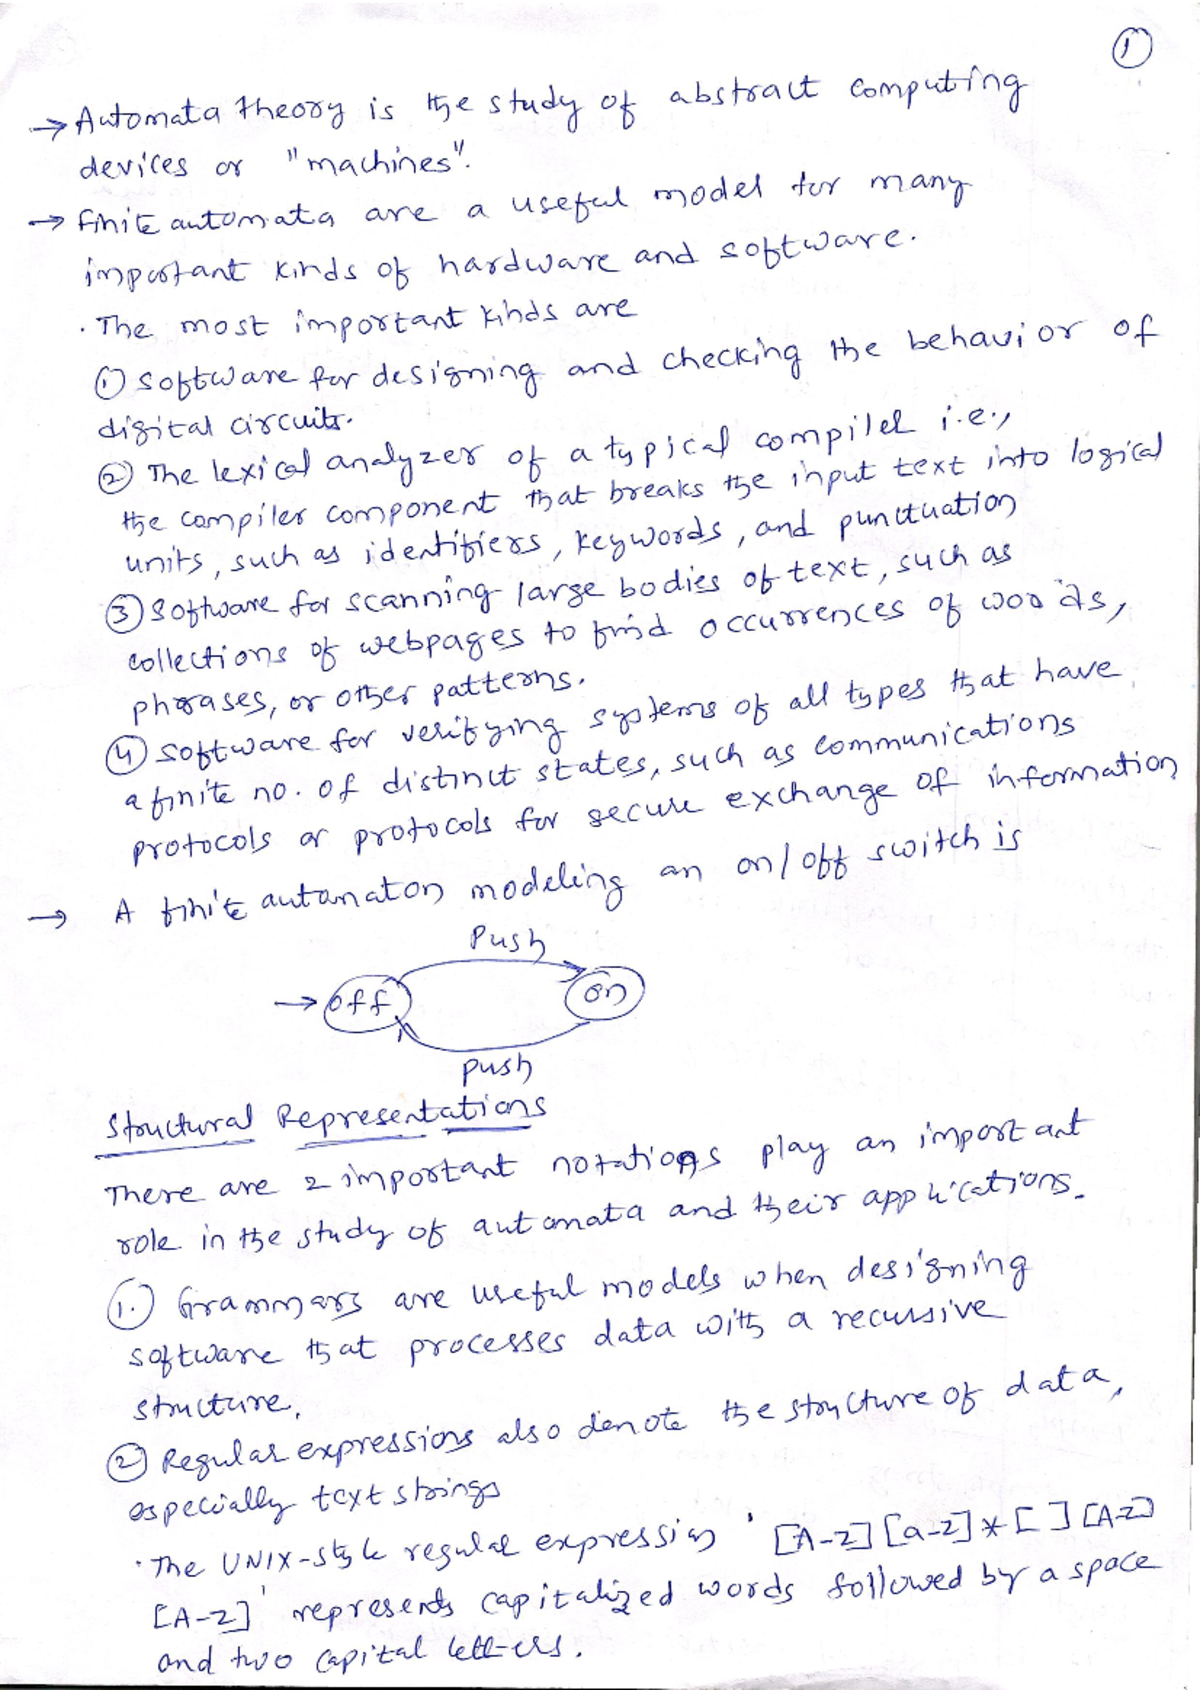 1
→ Automata theory is the study of abstract computing
devices or "machines".
→ finite automata are a useful model for many
important kinds of hardware and software.
· The most important kinds are
① software for designing and checking the behavior of
digital circuits.
② The lexical analyzer of a typical compiler i.e.,
the compiler component that breaks the input text into logical
units, such as identifiers, keywords, and punctuation
③ software for scanning large bodies of text, such as
collections of webpages to find occurrences of words,
phrases, or other patterns.
④ software for verifying systems of all types that have
a finite no. of distinct states, such as communications
protocols or protocols for secure exchange of information
→ A finite automaton modeling an on/off switch is
Push
→ off on
push
Structural Representations
There are 2 important notations play an important
role in the study of automata and their applications.
1. Grammars are useful models when designing
software that processes data with a recursive
structure.
② Regular expressions also denote the structure of data,
especially text strings
· The UNIX-style regular expression '[A-Z][a-z]*[ ][A-Z]
[A-Z]' represents capitalized words followed by a space
and two capital letters.